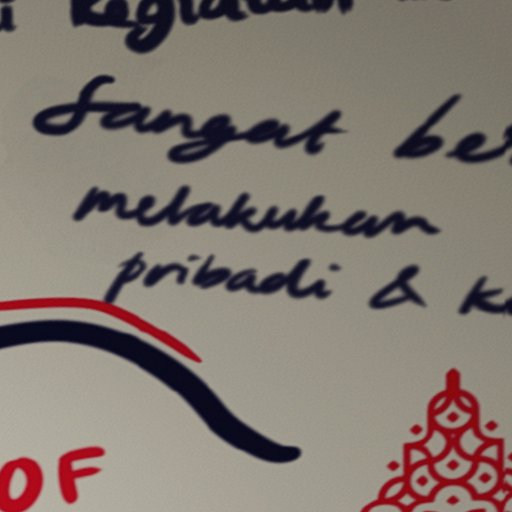 kegiatan
Sangat
melakukan
pribadi &
OF